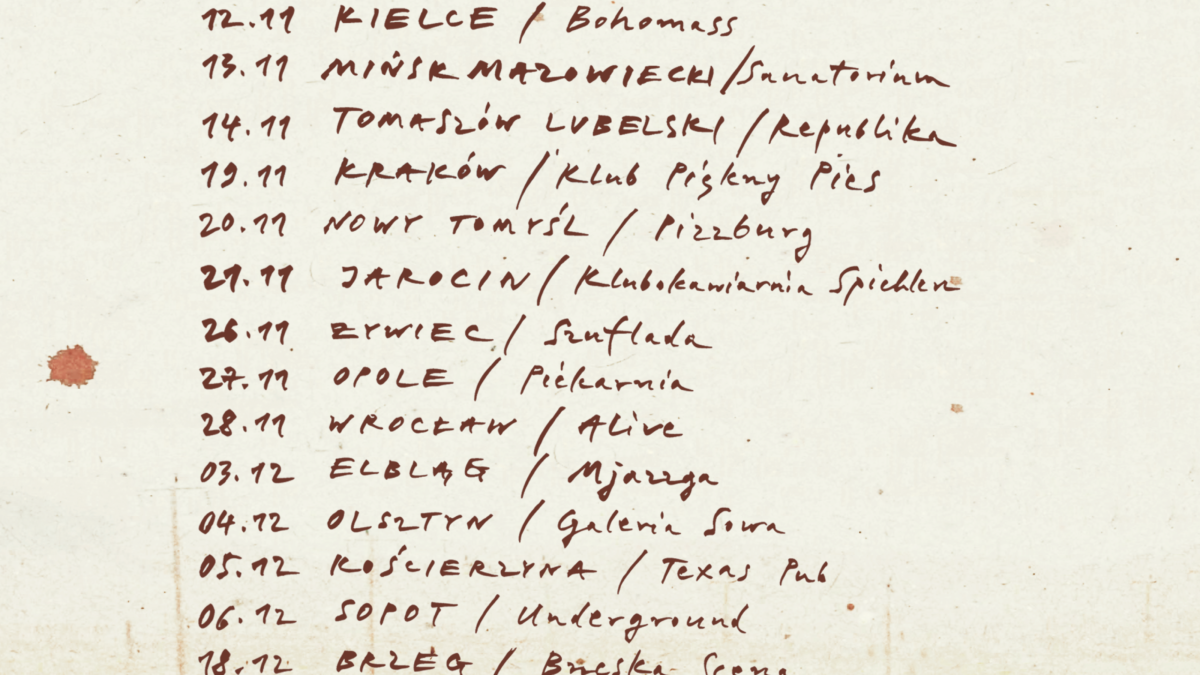 12.11 KIELCE / Bohomass
13.11 MIŃSK MAZOWIECKI / Sanatorium
14.11 TOMASZÓW LUBELSKI / Republika
19.11 KRAKÓW / Klub Piękny Pies
20.11 NOWY TOMYŚL / Pizzburg
21.11 JAROCIN / Klubokawiarnia Spichlerz
26.11 ŻYWIEC / Szuflada
27.11 OPOLE / Piekarnia
28.11 WROCŁAW / Alive
03.12 ELBLĄG / Mjazzga
04.12 OLSZTYN / Galeria Sowa
05.12 KOŚCIERZYNA / Texas Pub
06.12 SOPOT / Underground
18.12 BRZEG / Brzeska Scena